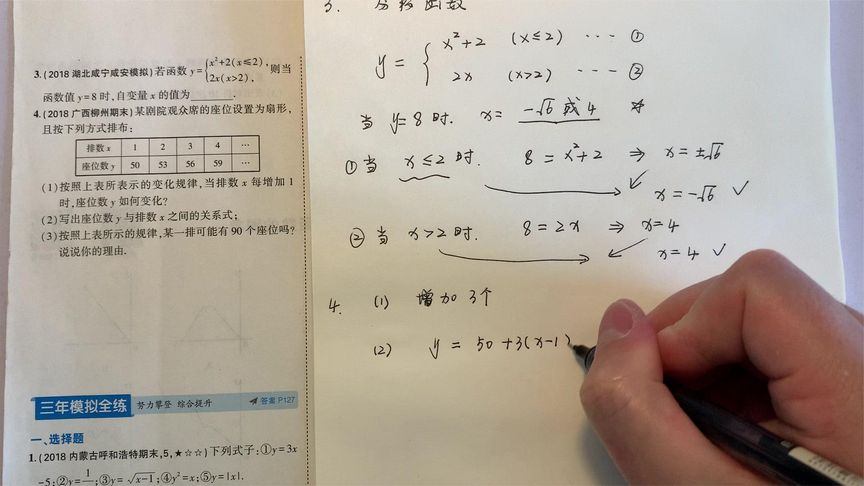 3.(2018湖北咸宁咸安模拟)若函数y={x²+2(x≤2),
2x(x>2),
则当
函数值y=8时,自变量x的值为______.
4.(2018广西柳州期末)某剧院观众席的座位设置为扇形,
且按下列方式排布:
排数x 1 2 3 4 …
座位数y 50 53 56 59 …
(1)按照上表所表示的变化规律,当排数x每增加1
时,座位数y如何变化?
(2)写出座位数y与排数x之间的关系式;
(3)按照上表所示的规律,某一排可能有90个座位吗?
说说你的理由.
三年模拟全练 努力攀登 综合提升 答案P127
一、选择题
1.(2018内蒙古呼和浩特期末,5,★☆☆)下列式子:①y=3x
-5;②y=1/x;③y=√x-1;④y²=x;⑤y=|x|.
3. 分段函数
y={ x²+2 (x≤2) … ①
2x (x>2) … ②
当 y=8 时. x= -√6 或 4
①当 x≤2 时. 8=x²+2 ⇒ x=±√6
x=-√6 ✓
②当 x>2 时. 8=2x ⇒ x=4
x=4 ✓
4. (1) 增加3个
(2) y=50+3(x-1)